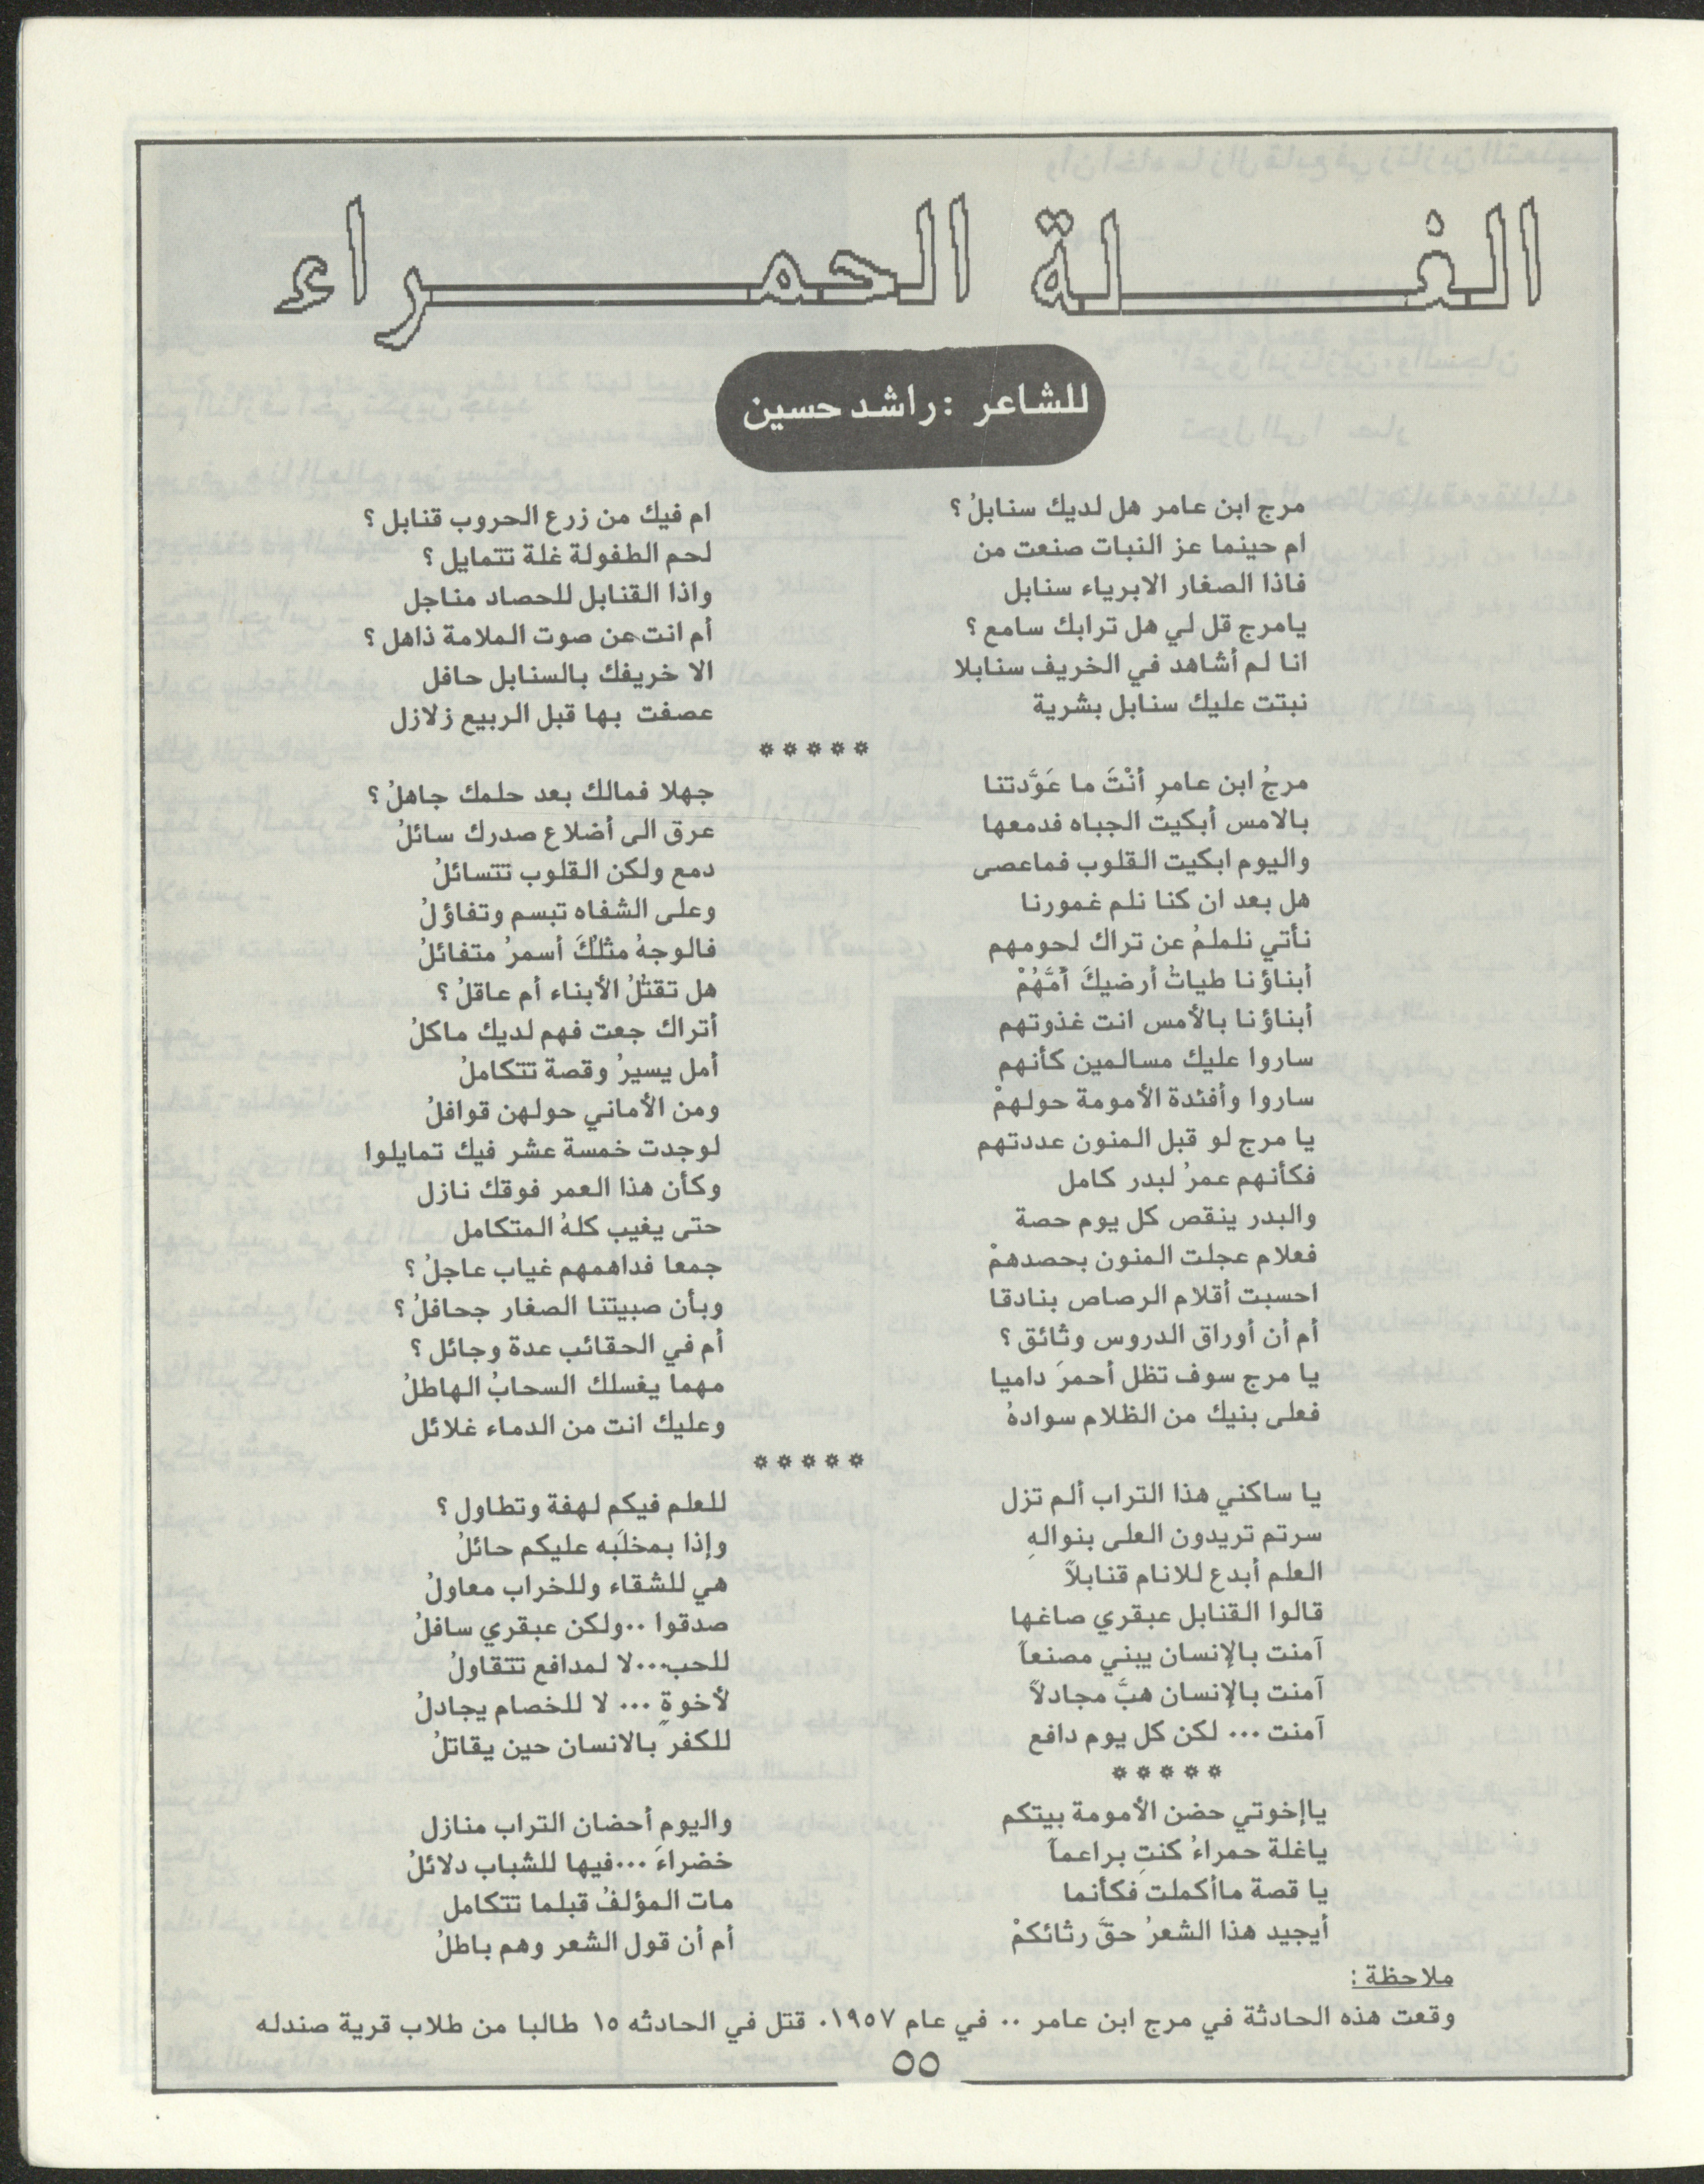 الغلة الحمراء
للشاعر : راشد حسين
مرج ابن عامر هل لديك سنابلُ ؟ ام فيك من زرع الحروب قنابل ؟
ام حينما عز النبات صنعت من لحم الطفولة غلة تتمايل ؟
فاذا الصغار الابرياء سنابل واذا القنابل للحصاد مناجل
يامرج قل لي هل ترابك سامع ؟ أم انت عن صوت الملامة ذاهل ؟
انا لم أشاهد في الخريف سنابلا الا خريفك بالسنابل حافل
نبتت عليك سنابل بشرية عصفت بها قبل الربيع زلازل
*****
مرجُ ابن عامرِ أنْتَ ما عَوَّدتنا جهلا فمالك بعد حلمك جاهلُ ؟
بالامس أبكيت الجباه فدمعها عرق الى أضلاع صدرك سائلُ
واليوم ابكيت القلوب فماعصى دمع ولكن القلوب تتسائلُ
هل بعد ان كنا نلم غمورنا وعلى الشفاه تبسم وتفاؤلُ
نأتي نلملمُ عن تراك لحومهم فالوجهُ مثلُكَ أسمرُ متفائلُ
أبناؤنا طياتُ أرضيكَ أمَّهُمْ هل تقتُلُ الأبناء أم عاقلُ ؟
أبناؤنا بالأمس انت غذوتهم أتراك جعت فهم لديك ماكلُ
ساروا عليك مسالمين كأنهم أمل يسيرُ وقصة تتكاملُ
ساروا وأفئدة الأمومة حولهمْ ومن الأماني حولهن قوافلُ
يا مرج لو قبل المنون عددتهم لوجدت خمسة عشر فيك تمايلوا
فكأنهم عمرُ لبدر كامل وكأن هذا العمر فوقك نازل
والبدر ينقص كل يوم حصة حتى يغيب كلهُ المتكامل
فعلام عجلت المنون بحصدهمْ جمعا فداهمهم غياب عاجلُ ؟
احسبت أقلام الرصاص بنادقا وبأن صبيتنا الصغار جحافلُ ؟
أم أن أوراق الدروس وثائق ؟ أم في الحقائب عدة وجائل ؟
يا مرج سوف تظل أحمرَ داميا مهما يغسلك السحابُ الهاطلُ
فعلى بنيك من الظلام سوادهُ وعليك انت من الدماء غلائل
*****
يا ساكني هذا التراب ألم تزل للعلم فيكم لهفة وتطاول ؟
سرتم تريدون العلى بنوالهِ وإذا بمخلَبه عليكم حائلُ
العلم أبدع للانام قنابلاً هي للشقاء وللخراب معاولُ
قالوا القنابل عبقري صاغها صدقوا ..ولكن عبقري سافلُ
آمنت بالإنسان يبني مصنعاً للحب...لا لمدافع تتقاولُ
آمنت بالإنسان هبَّ مجادلاً لأخوةٍ ... لا للخصام يجادلُ
آمنت ... لكن كل يوم دافع للكفر بالانسان حين يقاتلُ
*****
ياإخوتي حضن الأمومة بيتكم واليوم أحضان التراب منازل
ياغلة حمراءُ كنتِ براعماً خضراءَ ...فيها للشباب دلائلُ
يا قصة ماأكملت فكأنما مات المؤلفُ قبلما تتكامل
أيجيد هذا الشعرُ حقَّ رثائكمْ أم أن قول الشعر وهم باطلُ
ملاحظة :
وقعت هذه الحادثة في مرج ابن عامر .. في عام ١٩٥٧. قتل في الحادثه ١٥ طالبا من طلاب قرية صندله
٥٥